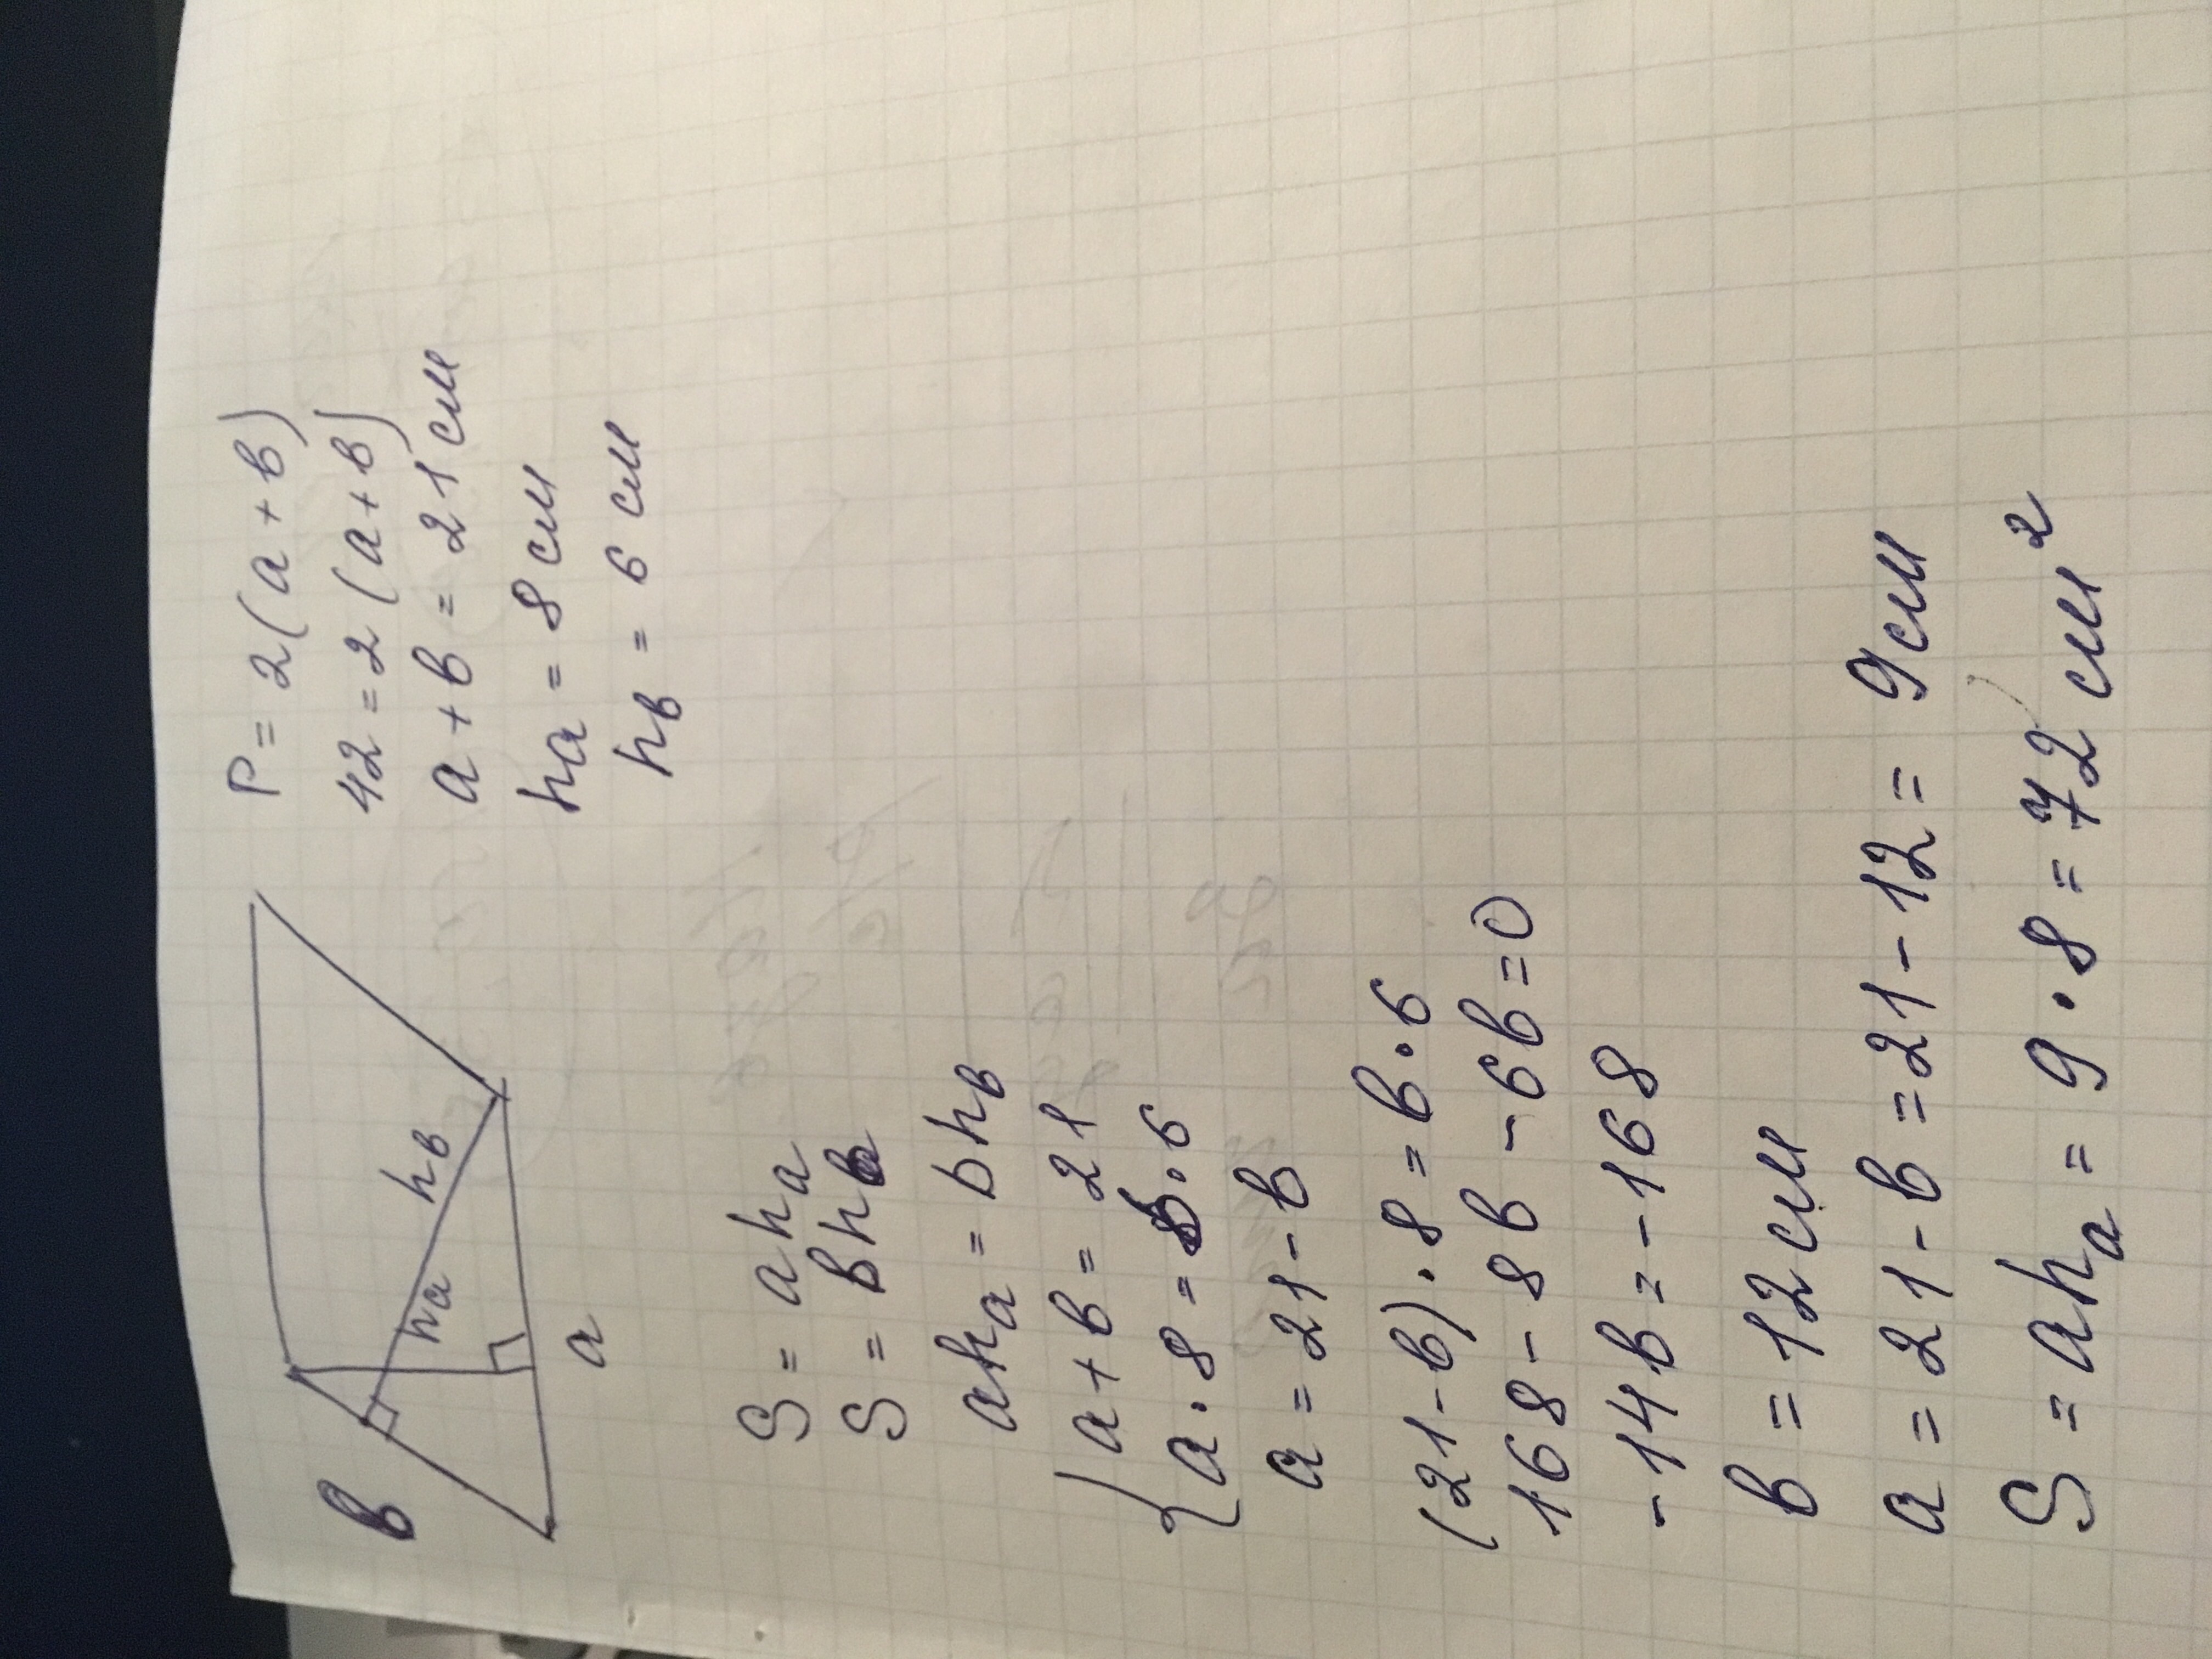 P = 2(a + в)
42 = 2(a + в)
a + в = 21 см
ha = 8 см
hв = 6 см
в
ha
hв
a
S = a ha
S = в hв
a ha = в hв
{ a + в = 21
a · 8 = в · 6
a = 21 - в
(21 - в) · 8 = в · 6
168 - 8в - 6в = 0
-14в = -168
в = 12 см
a = 21 - в = 21 - 12 = 9 см
S = a ha = 9 · 8 = 72 см²